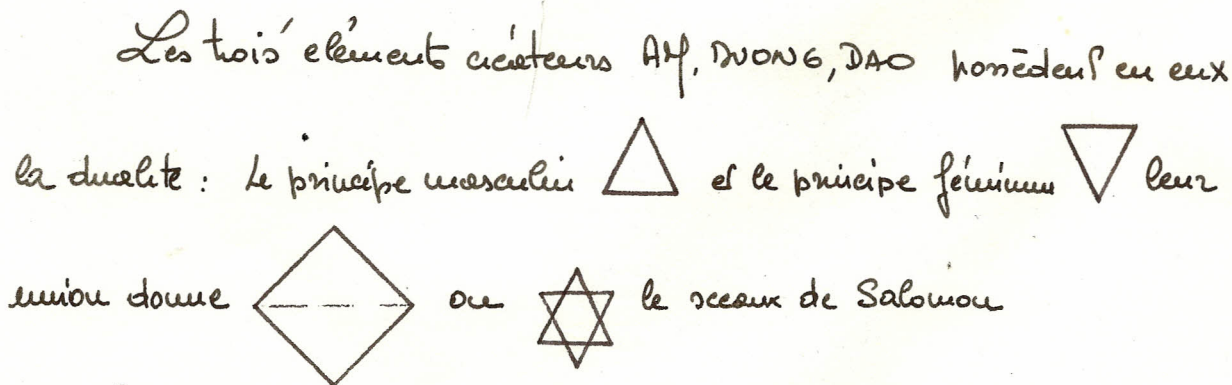 Les trois eléments créateurs AM, DUONG, DAO possèdent en eux
la dualite : Le principe masculin et le principe féminin leur
union donne ou le sceaux de Salomon